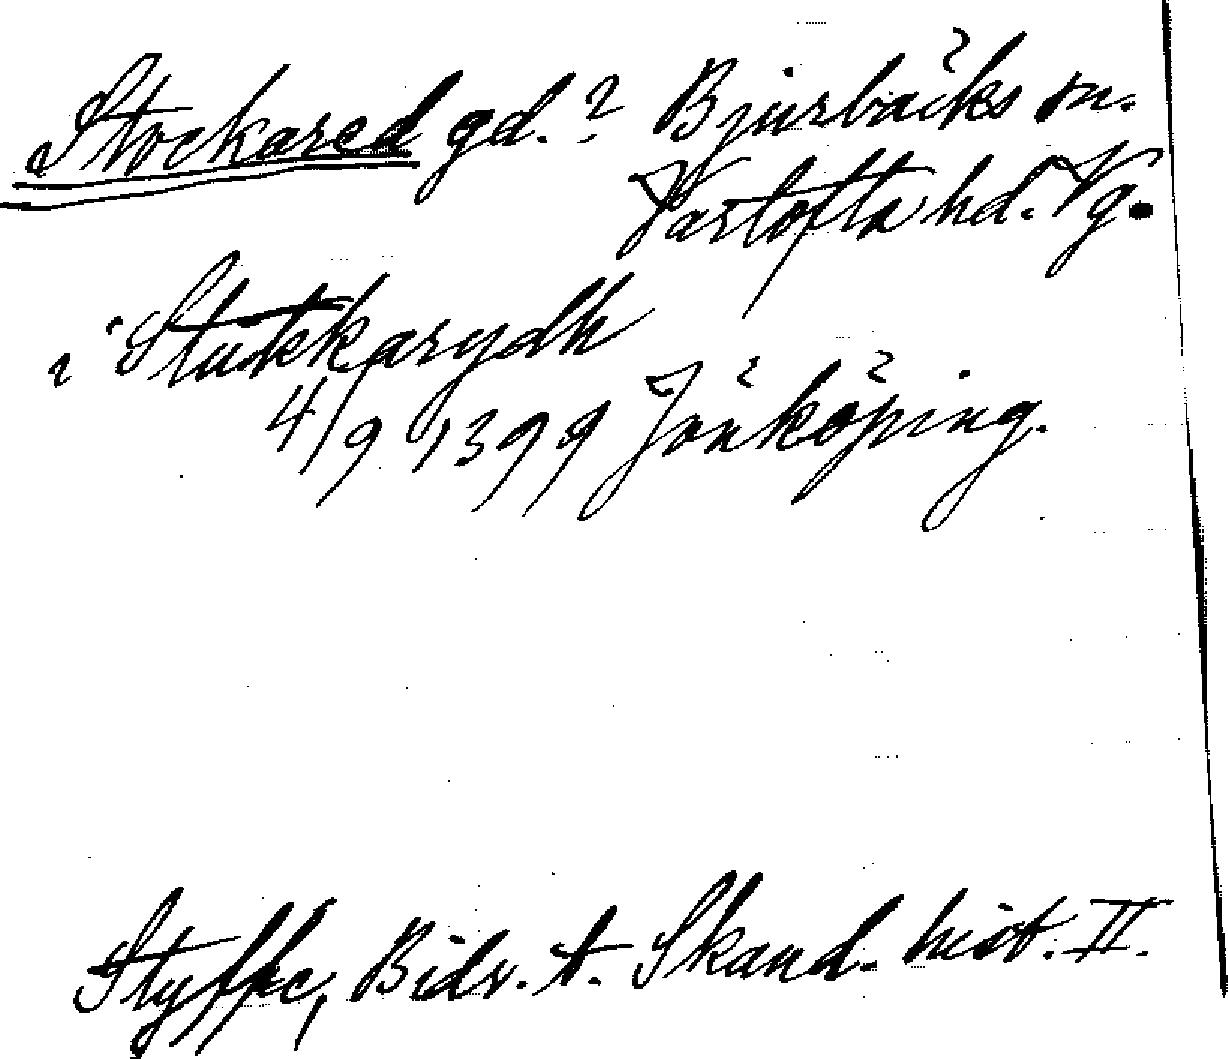 Stockared gd.? Bjurbäcks sn.
Vartofta hd. Vg.
i Stukkarydh
4/9 1399 Jönköping.
Styffe, Bidr. t. Skand. hist. II.